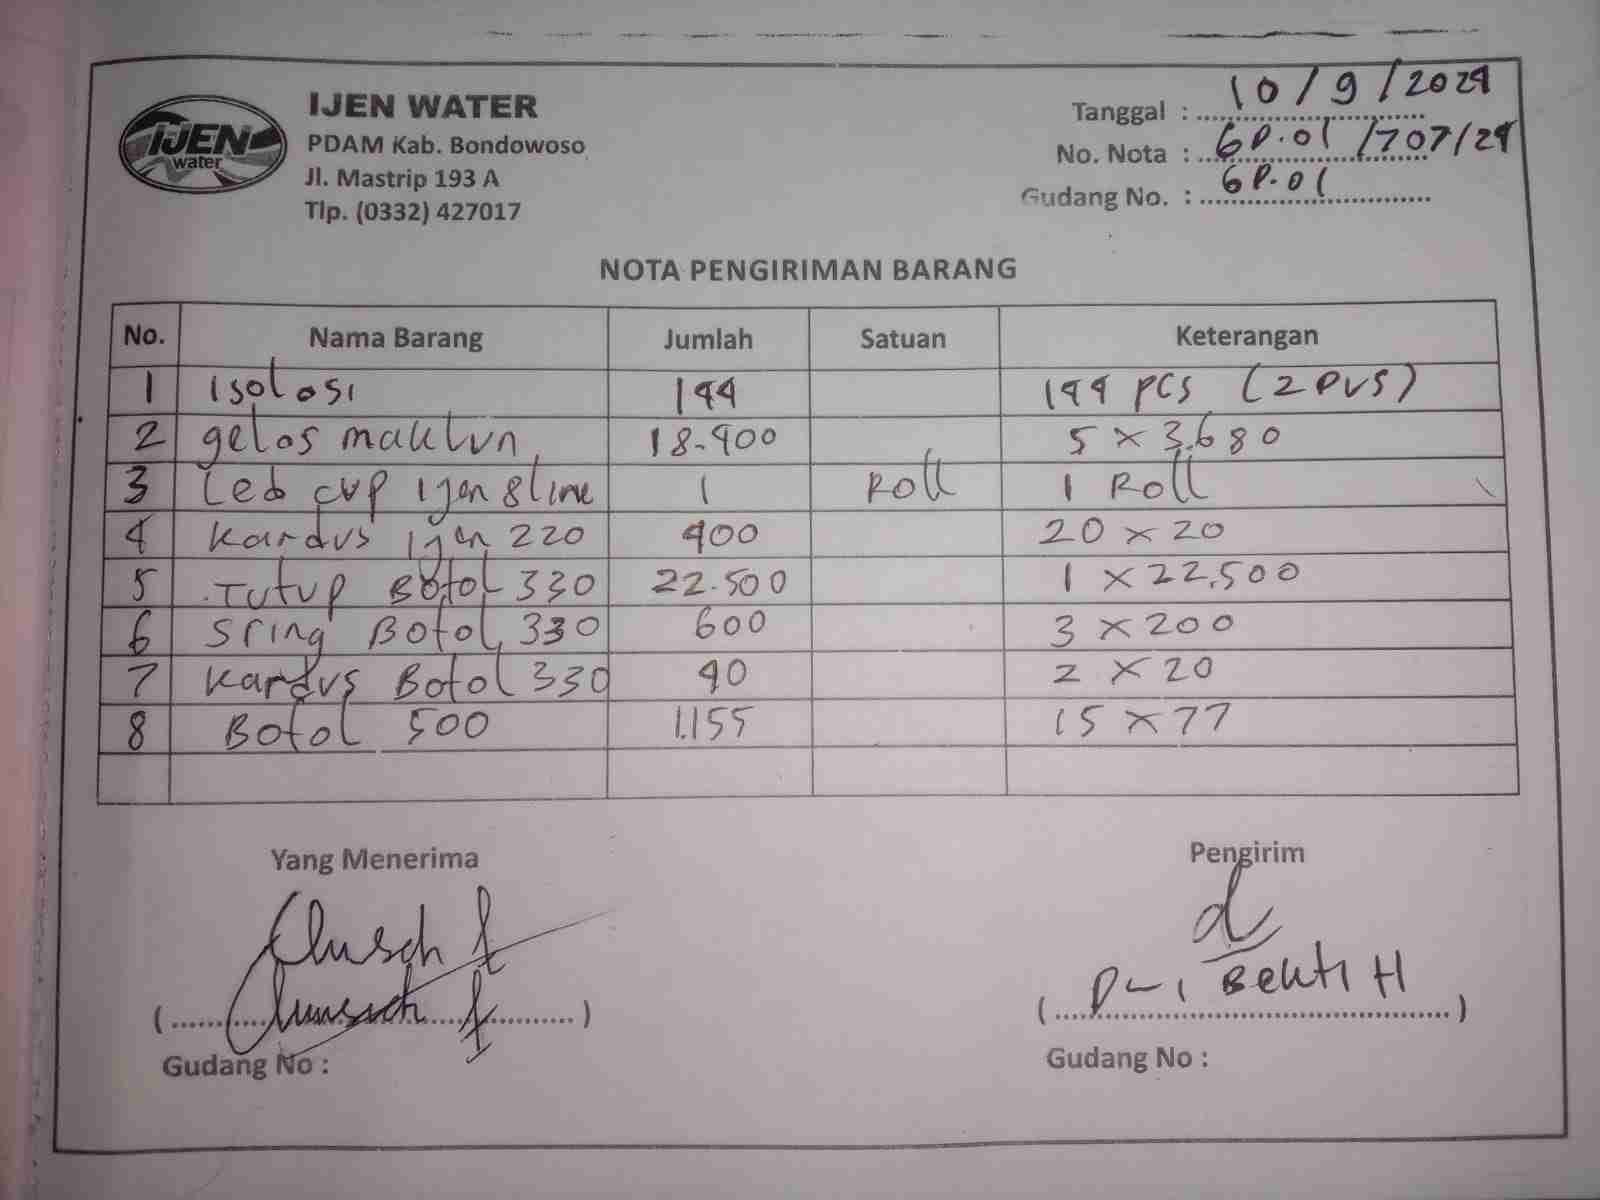 IJEN
water
IJEN WATER
PDAM Kab. Bondowoso
Jl. Mastrip 193 A
Tlp. (0332) 427017
Tanggal : 10/9/2024
No. Nota : GP.01/707/24
Gudang No. : GP.01
NOTA PENGIRIMAN BARANG
No. Nama Barang Jumlah Satuan Keterangan
1 Isolasi 144 144 pcs (2 Dus)
2 gelas maklun 18.400 5 x 3.680
3 Led cup ijen 8 line 1 Roll 1 Roll
4 Kardus ijen 220 400 20 x 20
5 Tutup Botol 330 22.500 1 x 22.500
6 Sring Botol 330 600 3 x 200
7 Kardus Botol 330 40 2 x 20
8 Botol 500 1.155 15 x 77
Yang Menerima Pengirim
(....................) (Dwi Bekti H)
Gudang No : Gudang No :